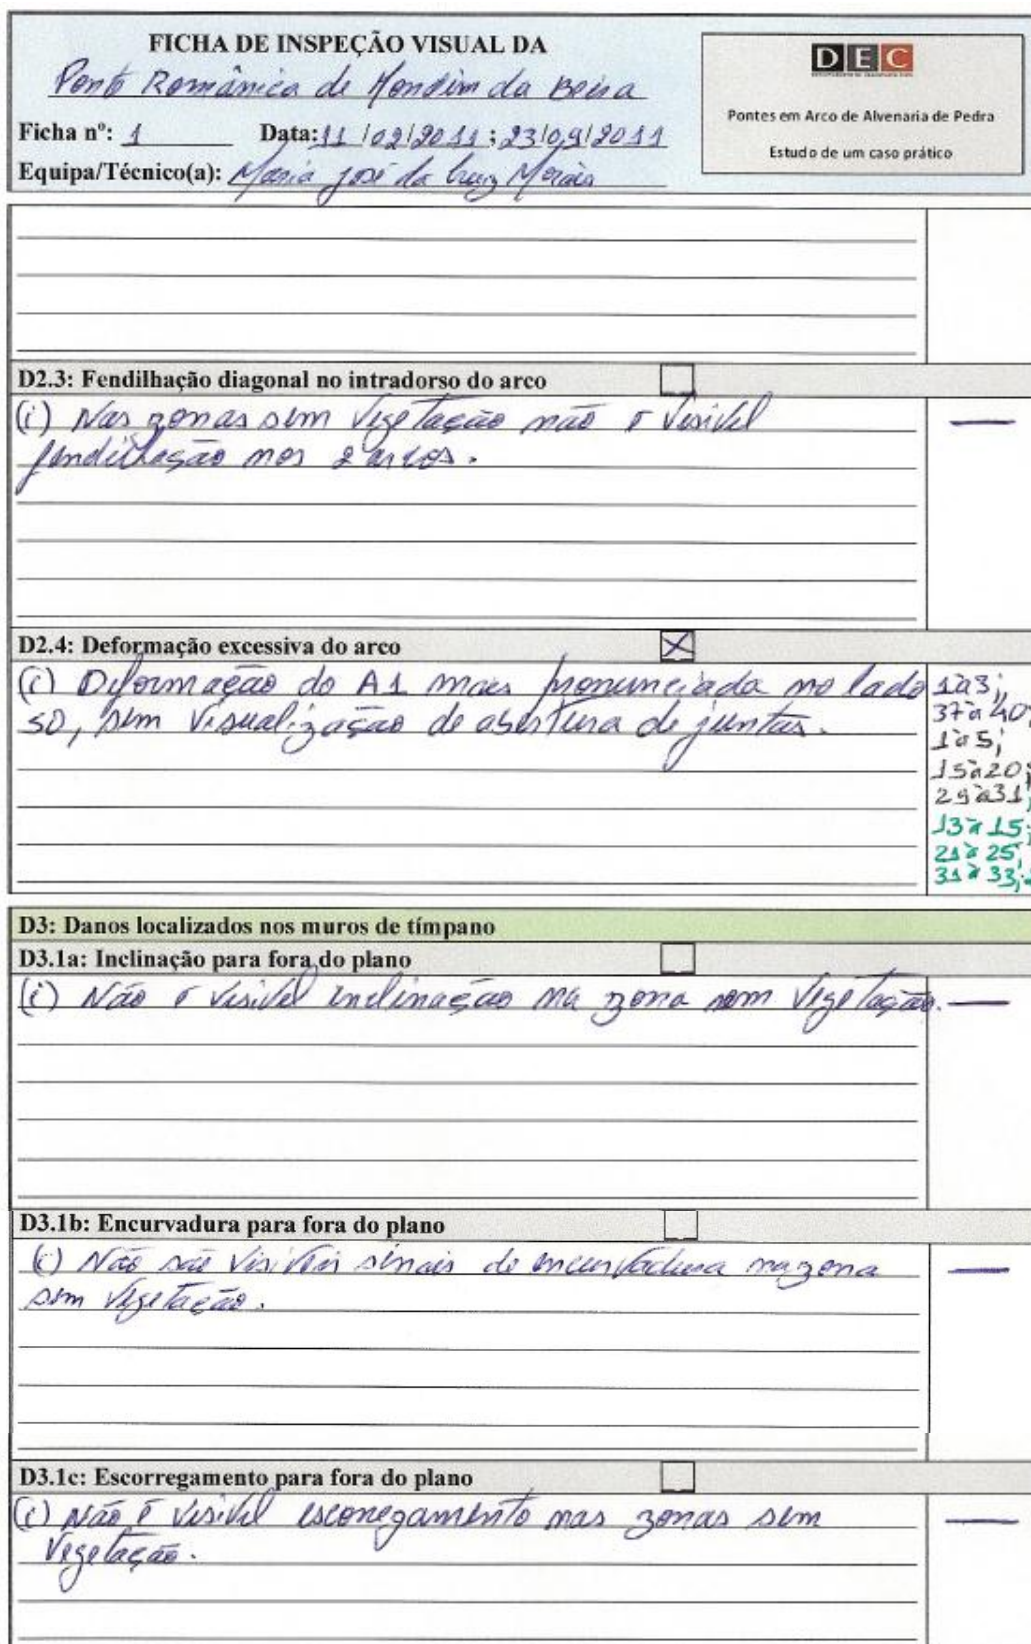 FICHA DE INSPEÇÃO VISUAL DA
Ponte Românica de Mondim da Beira
Ficha nº: 1 Data: 11/02/2011; 23/09/2011
Equipa/Técnico(a): Maria José da Cruz Morais
DEC
Pontes em Arco de Alvenaria de Pedra
Estudo de um caso prático
D2.3: Fendilhação diagonal no intradorso do arco
(i) Nas zonas sem vegetação não é visível —
fendilhação nos 2 arcos.
D2.4: Deformação excessiva do arco X
(i) Deformação do A1 mais pronunciada no lado
SO, sem visualização de abertura de juntas.
1 a 3;
37 a 40;
1 a 5;
15 a 20;
29 a 31;
13 a 15;
21 a 25;
31 a 33;
D3: Danos localizados nos muros de tímpano
D3.1a: Inclinação para fora do plano
(i) Não é visível inclinação na zona sem vegetação. —
D3.1b: Encurvadura para fora do plano
(i) Não são visíveis sinais de encurvadura na zona —
sem vegetação.
D3.1c: Escorregamento para fora do plano
(i) Não é visível escorregamento nas zonas sem —
vegetação.